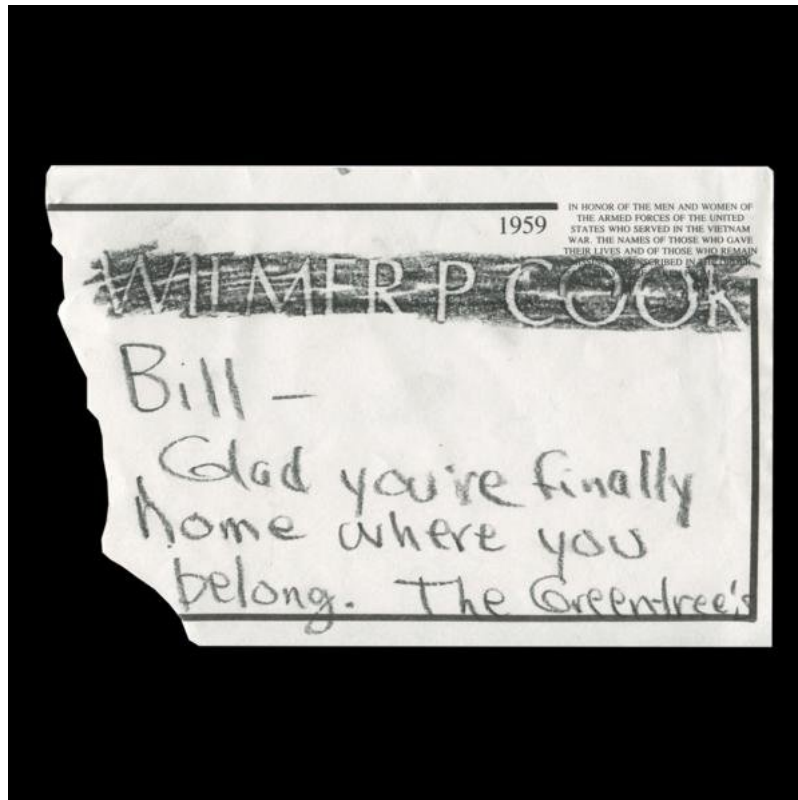 1959
IN HONOR OF THE MEN AND WOMEN OF
THE ARMED FORCES OF THE UNITED
STATES WHO SERVED IN THE VIETNAM
WAR. THE NAMES OF THOSE WHO GAVE
THEIR LIVES AND OF THOSE WHO REMAIN
WILMER P COOK
Bill —
Glad you're finally
home where you
belong. The Greentree's